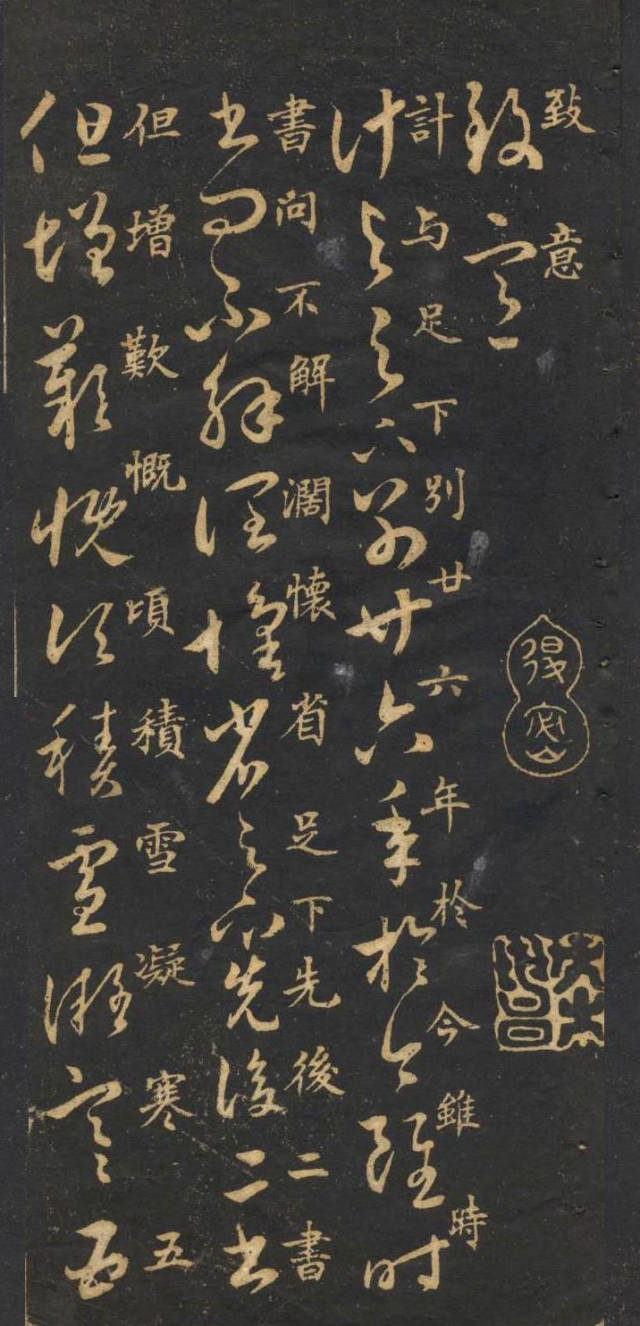 致意
計与足下別廿六年扵今雖時
書問不解濶懷省足下先後二書
但增歎慨頃積雪凝寒五